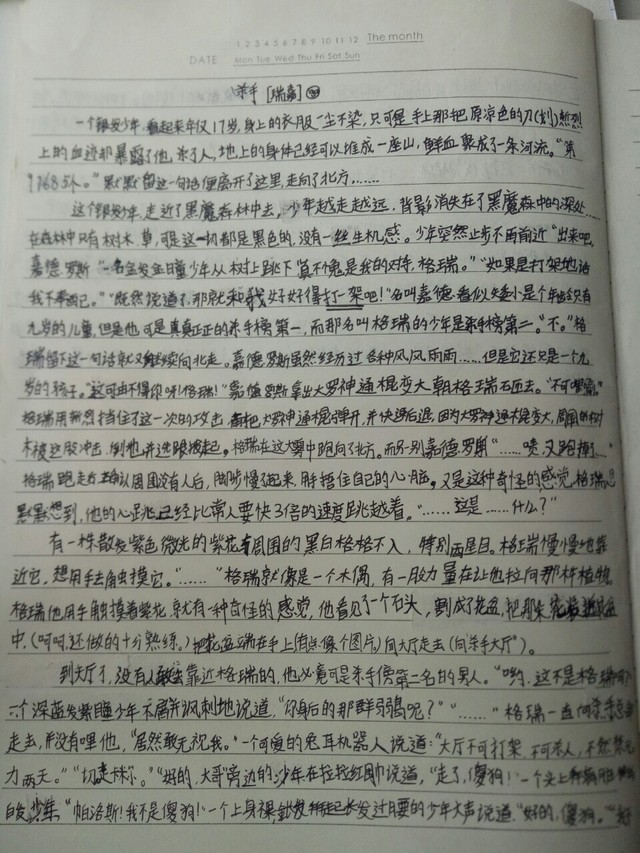 1 2 3 4 5 6 7 8 9 10 11 12 The month
DATE Mon Tue Wed Thu Fri Sat Sun
杀手 [瑞嘉]
一个银发少年,看起来年仅17岁,身上的衣服一尘不染,只可是手上那把原凉色的刀(划)烈
上的血迹却暴露了他,杀了人,地上的身体已经可以堆成一座山,鲜血聚成了一条河流。"第
个。"默默留这一句话便离开了这里,走向了北方……
这个银发少年,走近了黑魔森林中去,少年越走越远,背影消失在了黑魔森林中的深处……
在森林中只有树木、草,可是这一切都是黑色的,没有一丝生机感。少年突然止步不再前近"出来吧,
嘉德罗斯"一名金发金瞳少年从树上跳下"真不愧是我的对手,格瑞。""如果是打架地话
我不奉陪已。""既然说道了,那就和我好好得打一架吧!"名叫嘉德看似矮小是个年龄只有
九岁的儿童,但是他可是真真正正的杀手榜第一,而那名叫格瑞的少年是杀手榜第二。"不。"格
瑞留下这一句话就又继续向北走。嘉德罗斯虽然经历过各种风风雨雨……但是它还只是一个九
岁的孩子。"这可由不得你呀!格瑞!"嘉德罗斯拿出大罗神通棍变大朝格瑞石匝去。"不可理喻。"
格瑞用烈挡住了这一次的攻击,大罗神通棍弹开,并快速后退,因为大罗神通棍变大,周围的树
木被这股冲击,倒地,并进眼雾起。格瑞在这大雾中跑向了北方。而另一别嘉德罗斯"……啧,又跑掉……"
格瑞跑走确认周围没有人后,脚步慢了起来,用手捂住自己的心脏。又是这种奇怪的感觉,格瑞
默默想到,他的心跳已经比常人要快了3倍的速度跳越着。"……这是……什么?"
有一株散发紫色微光的紫花与周围的黑白格格不入,特别两显目。格瑞慢慢地靠
近它,想用手去触摸它。"……"格瑞就像是一个木偶,有一股力量在让他拉向那种植物,
格瑞他用手触摸着紫花,就有一种奇怪的感觉,他看见了一个石头,割成了花盆,把那朵
中,(呵呵,还做的十分熟练。)把花盆端在手上(有点像个图片)向大厅走去(向杀手大厅)。
到大厅了,没有人敢去靠近格瑞的,他必竟可是杀手傍第二名的男人。"哟,这不是格瑞吗?"
一个深蓝发紫瞳少年不屑并讽刺地说道,"你身后的那群弱弱呢?""……"格瑞一直向
走去,并没有理他,"居然敢无视我。"一个可爱的兔耳机器人说道:"大厅不可打架,不可杀人,不然禁
力两天。""切,走林尔。""好的,大哥"旁边的少年在拉拉红围巾说道,"走了,傻狗!"一个头上
白发少年,"帕洛斯!我不是傻狗!"一个上身裸,发过腰的少年大声说道,"好的,傻狗。"